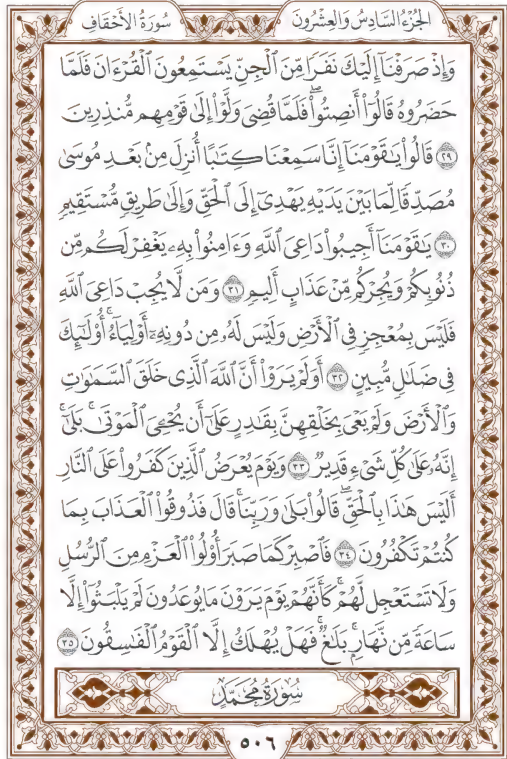 سُورَةُ الأَحْقَافِ
الجُزْءُ السَّادِسُ وَالعِشْرُونَ
وَإِذْ صَرَفْنَآ إِلَيْكَ نَفَرًا مِّنَ ٱلْجِنِّ يَسْتَمِعُونَ ٱلْقُرْءَانَ فَلَمَّا
حَضَرُوهُ قَالُوٓا۟ أَنصِتُوا۟ ۖ فَلَمَّا قُضِىَ وَلَّوْا۟ إِلَىٰ قَوْمِهِم مُّنذِرِينَ
٢٩ قَالُوا۟ يَـٰقَوْمَنَآ إِنَّا سَمِعْنَا كِتَـٰبًا أُنزِلَ مِنۢ بَعْدِ مُوسَىٰ
مُصَدِّقًا لِّمَا بَيْنَ يَدَيْهِ يَهْدِىٓ إِلَى ٱلْحَقِّ وَإِلَىٰ طَرِيقٍ مُّسْتَقِيمٍ
٣٠ يَـٰقَوْمَنَآ أَجِيبُوا۟ دَاعِىَ ٱللَّهِ وَءَامِنُوا۟ بِهِۦ يَغْفِرْ لَكُم مِّن
ذُنُوبِكُمْ وَيُجِرْكُم مِّنْ عَذَابٍ أَلِيمٍ ٣١ وَمَن لَّا يُجِبْ دَاعِىَ ٱللَّهِ
فَلَيْسَ بِمُعْجِزٍ فِى ٱلْأَرْضِ وَلَيْسَ لَهُۥ مِن دُونِهِۦٓ أَوْلِيَآءُ ۚ أُو۟لَـٰٓئِكَ
فِى ضَلَـٰلٍ مُّبِينٍ ٣٢ أَوَلَمْ يَرَوْا۟ أَنَّ ٱللَّهَ ٱلَّذِى خَلَقَ ٱلسَّمَـٰوَٰتِ
وَٱلْأَرْضَ وَلَمْ يَعْىَ بِخَلْقِهِنَّ بِقَـٰدِرٍ عَلَىٰٓ أَن يُحْـِۧىَ ٱلْمَوْتَىٰ ۚ بَلَىٰٓ
إِنَّهُۥ عَلَىٰ كُلِّ شَىْءٍ قَدِيرٌ ٣٣ وَيَوْمَ يُعْرَضُ ٱلَّذِينَ كَفَرُوا۟ عَلَى ٱلنَّارِ
أَلَيْسَ هَـٰذَا بِٱلْحَقِّ ۖ قَالُوا۟ بَلَىٰ وَرَبِّنَا ۚ قَالَ فَذُوقُوا۟ ٱلْعَذَابَ بِمَا
كُنتُمْ تَكْفُرُونَ ٣٤ فَٱصْبِرْ كَمَا صَبَرَ أُو۟لُوا۟ ٱلْعَزْمِ مِنَ ٱلرُّسُلِ
وَلَا تَسْتَعْجِل لَّهُمْ ۚ كَأَنَّهُمْ يَوْمَ يَرَوْنَ مَا يُوعَدُونَ لَمْ يَلْبَثُوٓا۟ إِلَّا
سَاعَةً مِّن نَّهَارٍۭ ۚ بَلَـٰغٌ ۚ فَهَلْ يُهْلَكُ إِلَّا ٱلْقَوْمُ ٱلْفَـٰسِقُونَ ٣٥
سُورَةُ مُحَمَّدٍ
٥٠٦